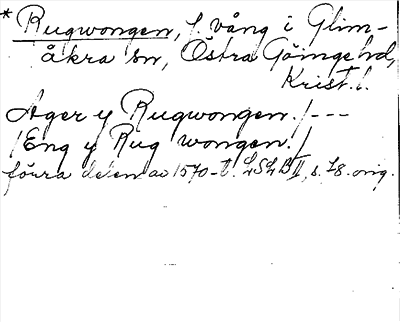 * Rugwongen, f. vång i Glim-
åkra sn, Östra Göinge hd,
Krist. l.
Ager y Rugwongen./---
/Eng y Rug wongen./
förra delen av 1570-t. LSLB II, s. 78. orig.